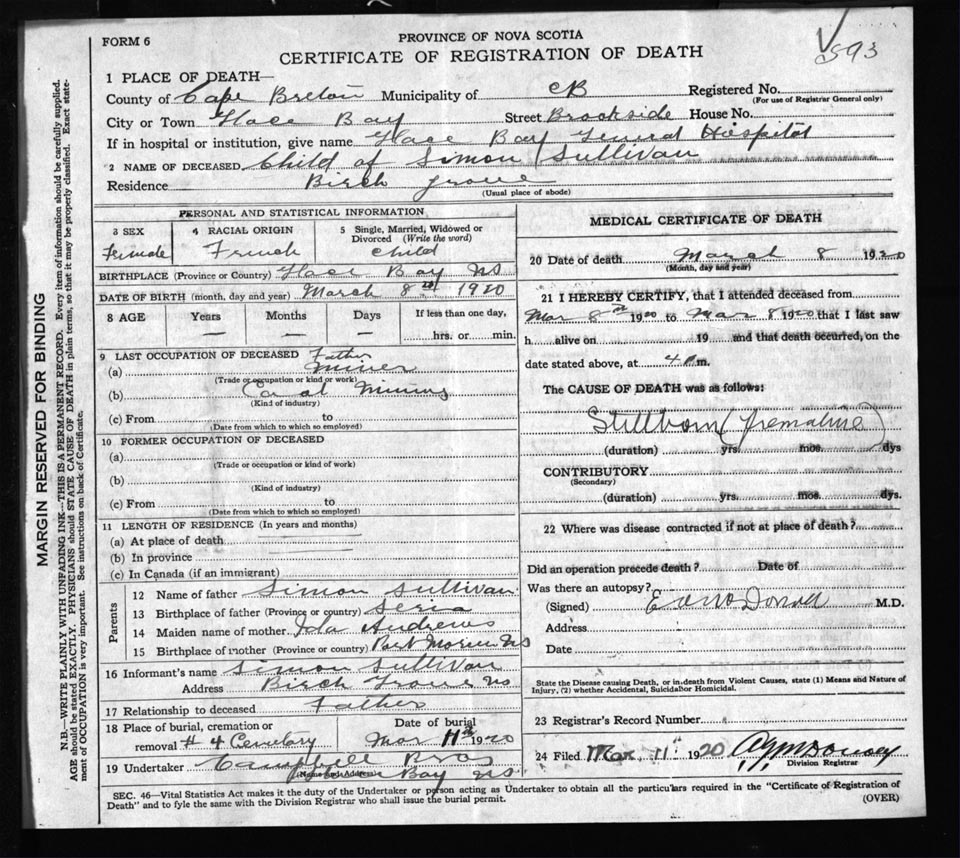 FORM 6
PROVINCE OF NOVA SCOTIA
CERTIFICATE OF REGISTRATION OF DEATH
893
1 PLACE OF DEATH—
County of Cape Breton Municipality of CB Registered No.
(For use of Registrar General only)
City or Town Glace Bay Street Brookside House No.
If in hospital or institution, give name Glace Bay General Hospital
2 NAME OF DECEASED Child of Simon Sullivan
Residence Birch Grove
(Usual place of abode)
PERSONAL AND STATISTICAL INFORMATION
3 SEX 4 RACIAL ORIGIN 5 Single, Married, Widowed or
Divorced (Write the word)
Female French Child
BIRTHPLACE (Province or Country) Glace Bay NS
DATE OF BIRTH (month, day and year) March 8th 1920
8 AGE Years Months Days If less than one day,
— — — hrs. or min.
9 LAST OCCUPATION OF DECEASED Father
(a) Miner
(Trade or occupation or kind or work)
(b) Coal Mining
(Kind of industry)
(c) From to
(Date from which to which so employed)
10 FORMER OCCUPATION OF DECEASED
(a)
(Trade or occupation or kind of work)
(b)
(Kind of industry)
(c) From to
(Date from which to which so employed)
11 LENGTH OF RESIDENCE (In years and months)
(a) At place of death
(b) In province
(c) In Canada (if an immigrant)
Parents
12 Name of father Simon Sullivan
13 Birthplace of father (Province or country)
14 Maiden name of mother Ida Andrews
15 Birthplace of mother (Province or country) Port Morien NS
16 Informant's name Simon Sullivan
Address Birch Grove NS
17 Relationship to deceased Father
18 Place of burial, cremation or Date of burial
removal # 4 Cemetary Mar 11th 1920
19 Undertaker Campbell Bros
(Name and Address) Bay NS
MEDICAL CERTIFICATE OF DEATH
20 Date of death March 8 1920
(Month, day and year)
21 I HEREBY CERTIFY, that I attended deceased from
Mar 8th 1920 to Mar 8 1920 that I last saw
h alive on 19 and that death occurred, on the
date stated above, at 4 P.m.
The CAUSE OF DEATH was as follows:
Stillborn (Premature)
(duration) yrs. mos. dys
CONTRIBUTORY
(Secondary)
(duration) yrs. mos. dys.
22 Where was disease contracted if not at place of death?
Did an operation precede death? Date of
Was there an autopsy?
(Signed) M.D.
Address
Date
State the Disease causing Death, or in death from Violent Causes, state (1) Means and Nature of
Injury, (2) whether Accidental, Suicidal or Homicidal.
23 Registrar's Record Number
24 Filed Mar 11th 1920
Division Registrar
SEC. 46—Vital Statistics Act makes it the duty of the Undertaker or person acting as Undertaker to obtain all the particulars required in the "Certificate of Registration of
Death" and to fyle the same with the Division Registrar who shall issue the burial permit. (OVER)
MARGIN RESERVED FOR BINDING
N.B.—WRITE PLAINLY WITH UNFADING INK—THIS IS A PERMANENT RECORD. Every item of information should be carefully supplied.
AGE should be stated EXACTLY. PHYSICIANS should STATE CAUSE OF DEATH in plain terms, so that it may be properly classified. Exact state-
ment of OCCUPATION is very important. See instructions on back of Certificate.